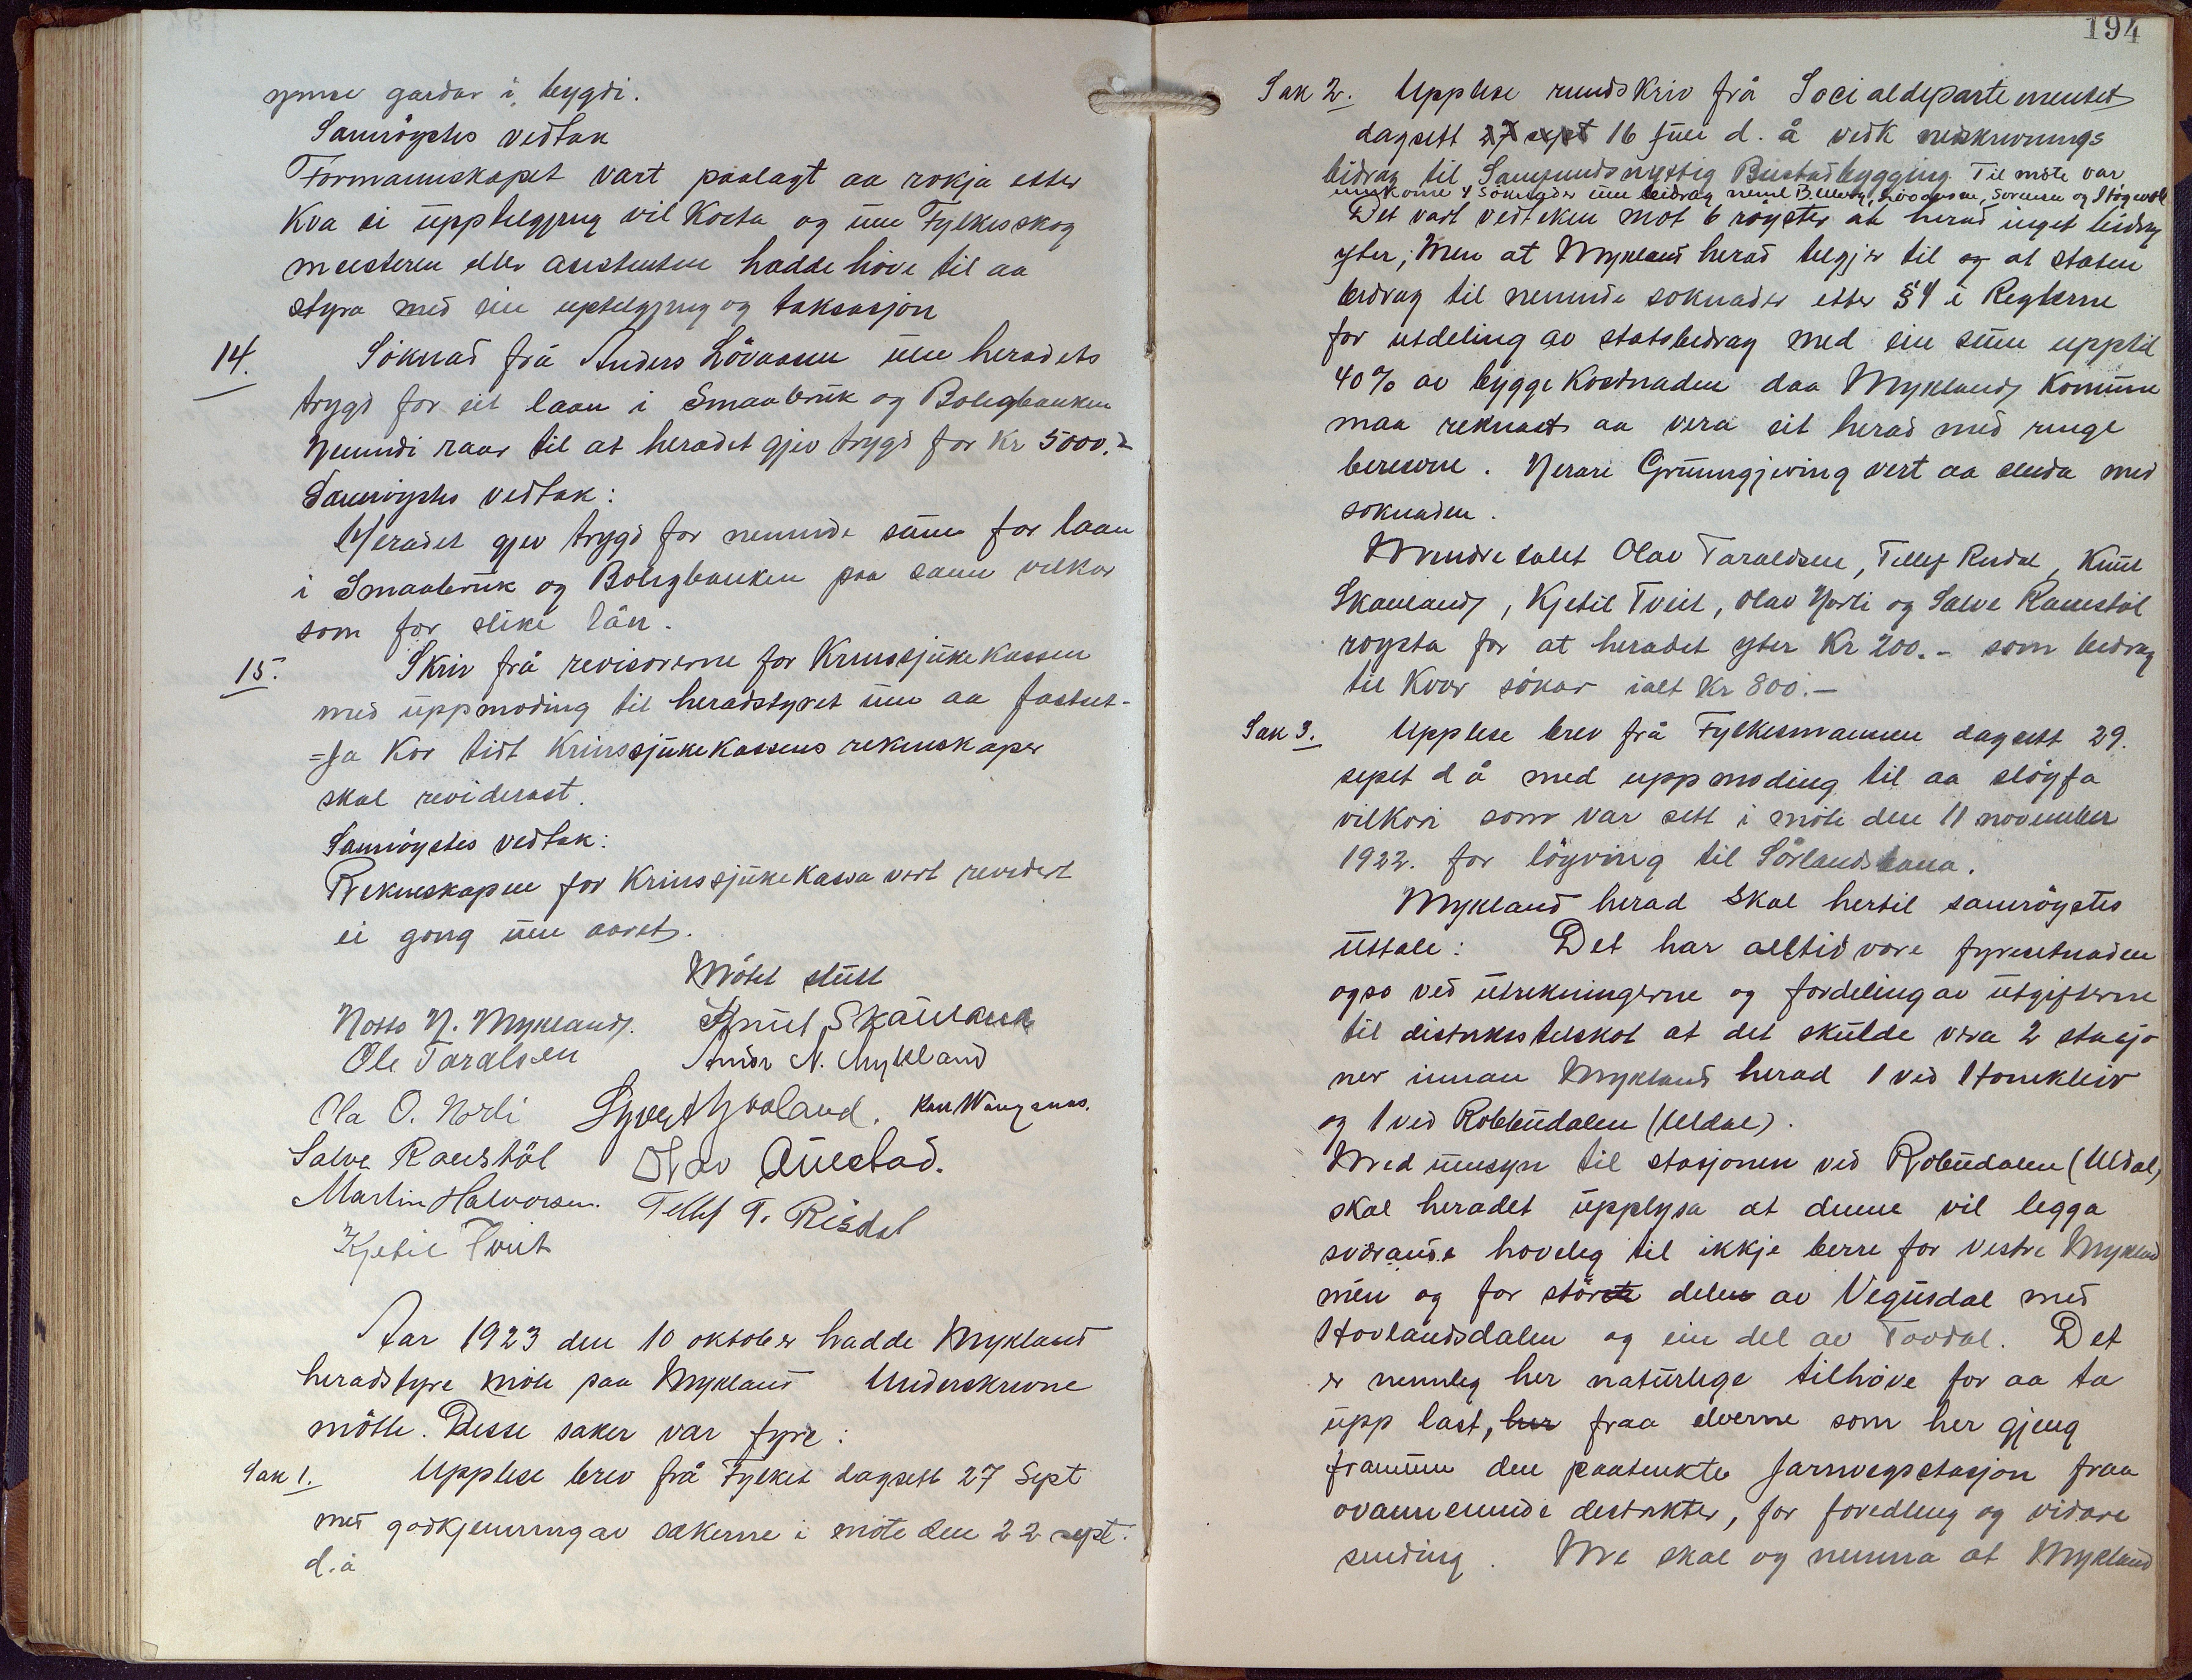 ymse gardar i bygdi.
Samröystes vedtak
Formannskapet vart paalagt aa rökja etter
Kva ei upptelgjing vil Kosta og um Fylkesskog
meisteren eller assistenten hadde höve til aa
styra med ein uptelgjing og taksasjon
14. Söknad frå Anders Lövaasen um heradets
trygd for eit laan i Smaabruk og Boligbanken
Nemndi raar til at heradet gjev trygd for Kr 5000.-
Samröystes vedtak:
Heradet gjev trygd for nemnde sum for laan
i Smaabruk og Boligbanken paa sama vilkor
som for slike lån.
15. Skriv frå revisorerne for Krinssjukekassen
med uppmoding til heradstyret um aa fastset-
=ja Kor tidt Krinssjukekassens rekneskaper
skal reviderast.
Samröystes vedtak:
Rekneskapen for Krinssjukekassa vert revidert
ei gong um aaret.
Mötet slutt
Notto N. Mykland. Knut Skailand
Ole Taraldsen Amdr N. Mykland
Ola O. Norli Syvert Hovland. Karl Wangsnes.
Salve Ramstöl Olav Aulestad.
Martin Halvorsen. Tellef T. Risdal
Kjetil Tveit
Aar 1923 den 10 oktober hadde Mykland
heradstyre möte paa Mykland Underskrevne
mötte. Desse saker var fyre:
Sak 1. Upplese brev frå Fylket dagsett 27 Sept
med godkjenning av sakerne i möte den 22 sept.
d.å
194
Sak 2. Upplese rundskriv frå Socialdepartementet
dagsett 27 sept 16 juli d. å vedk nedskrivnings
bidrag til Samfundsnyttig Bustadbygging. Til möte var
innkome 4 söknader um bidrag neml B. Lövaasen, Sorensen og
Det vart vedteken mot 6 röyster at herad inget bidrag
yter; Men at Mykland herad telgjer til og at staten
bidrag til nemnde soknader etter § 4 i Reglerne
for utdeling av statsbidrag med ein sum upptil
40% av byggekostnaden daa Myklands Komune
maa reknast aa vera eit herad med ringe
bereevne. Nerare Grunngjeving vert aa senda med
soknaden.
Mindretalet Olav Taraldsen, Tellef Risdal, Knut
Skauland, Kjetil Tveit, Olav Norli og Salve Ramstöl
roysta for at heradet yter Kr 200.- som bidrag
til Kvar sökar ialt Kr 800.-
Sak 3. Upplese brev frå Fylkesmannen dagsett 29.
sept d å med uppmoding til aa slöyfa
vilkori som var sett i möte den 11 november
1922. for löyving til Sörlandsbana.
Mykland herad skal hertil samröystes
uttale: Det har alltid vore fyresetnaden
ogso ved utrekningerne og fordeling av utgifterne
til distriktstilskot at det skulde vera 2 stasjo
ner innan Mykland herad 1 ved Honekleiv
og 1 ved Robbudalen (Uldal).
Med umsyn til stasjonen ved Robudalen (Uldal)
skal heradet upplysa at denne vil legga
sværande hoveleg til ikkje berre for vestre Mykland
men og for störste delen av Vegusdal med
Hovlandsdalen og ein del av Tovdal. Det
er nemnleg her naturlege tilhöve for aa ta
upp last, her fraa elverne som her gjeng
framum den paatenkte Jarnvegsstasjon fraa
ovannemnde distrikter, for foredling og vidare
sending. Me skal og nemna at Mykland